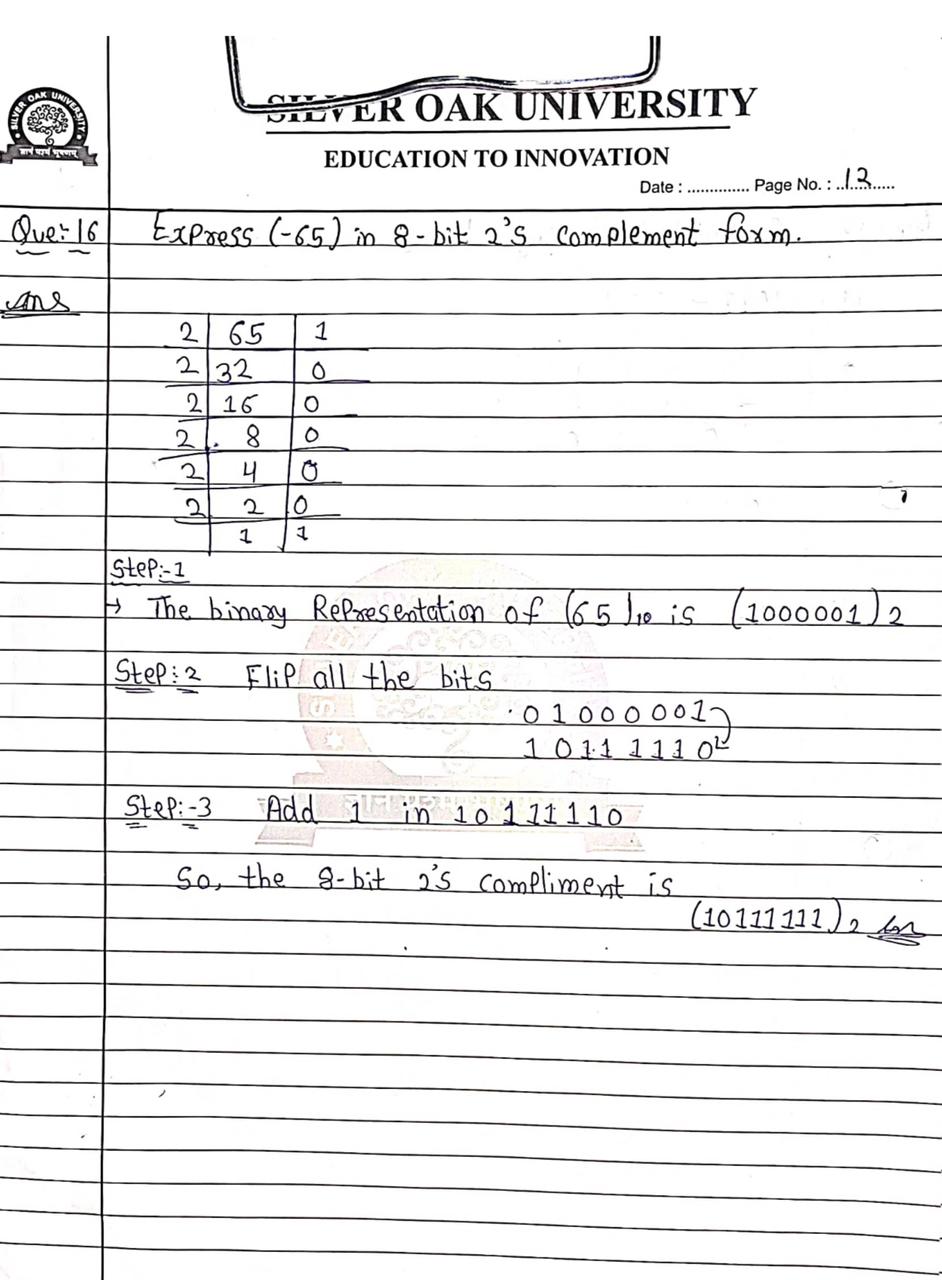 SILVER OAK UNIVERSITY
SILVER OAK UNIVERSITY
EDUCATION TO INNOVATION
Date : .............. Page No. : ..12......
Que:-16 Express (-65) in 8-bit 2's complement form.
Ans
2 65 1
2 32 0
2 16 0
2 8 0
2 4 0
2 2 0
1 1
Step:-1
→ The binary Representation of (65)10 is (1000001)2
Step:2 Flip all the bits
01000001
10111110
Step:-3 Add 1 in 10111110
So, the 8-bit 2's compliment is
(10111111)2